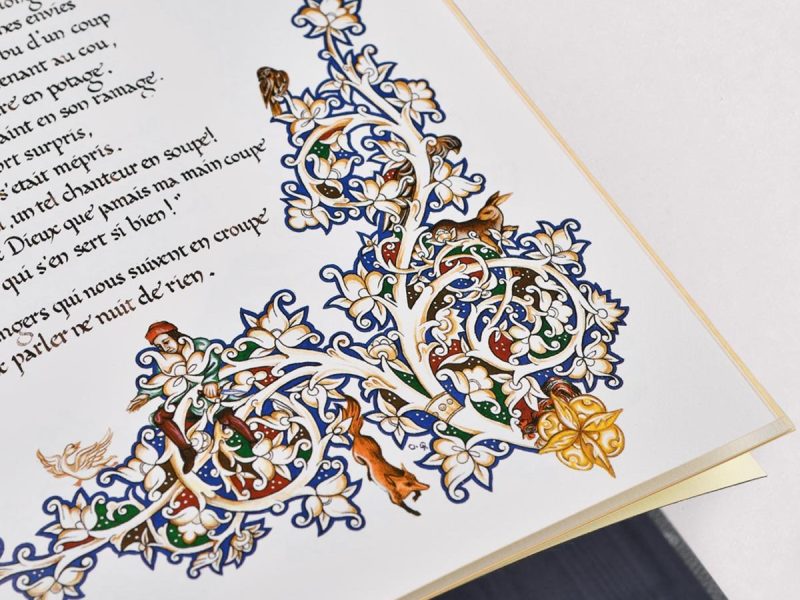 nes envies
bu d'un coup
enant au cou,
re en potage.
aint en son ramage.
ort surpris,
s'était mépris.
un tel chanteur en soupe!
Dieux que jamais ma main coupe
qui s'en sert si bien!"
ngers qui nous suivent en croupe
parler ne nuit de rien.
O.G.